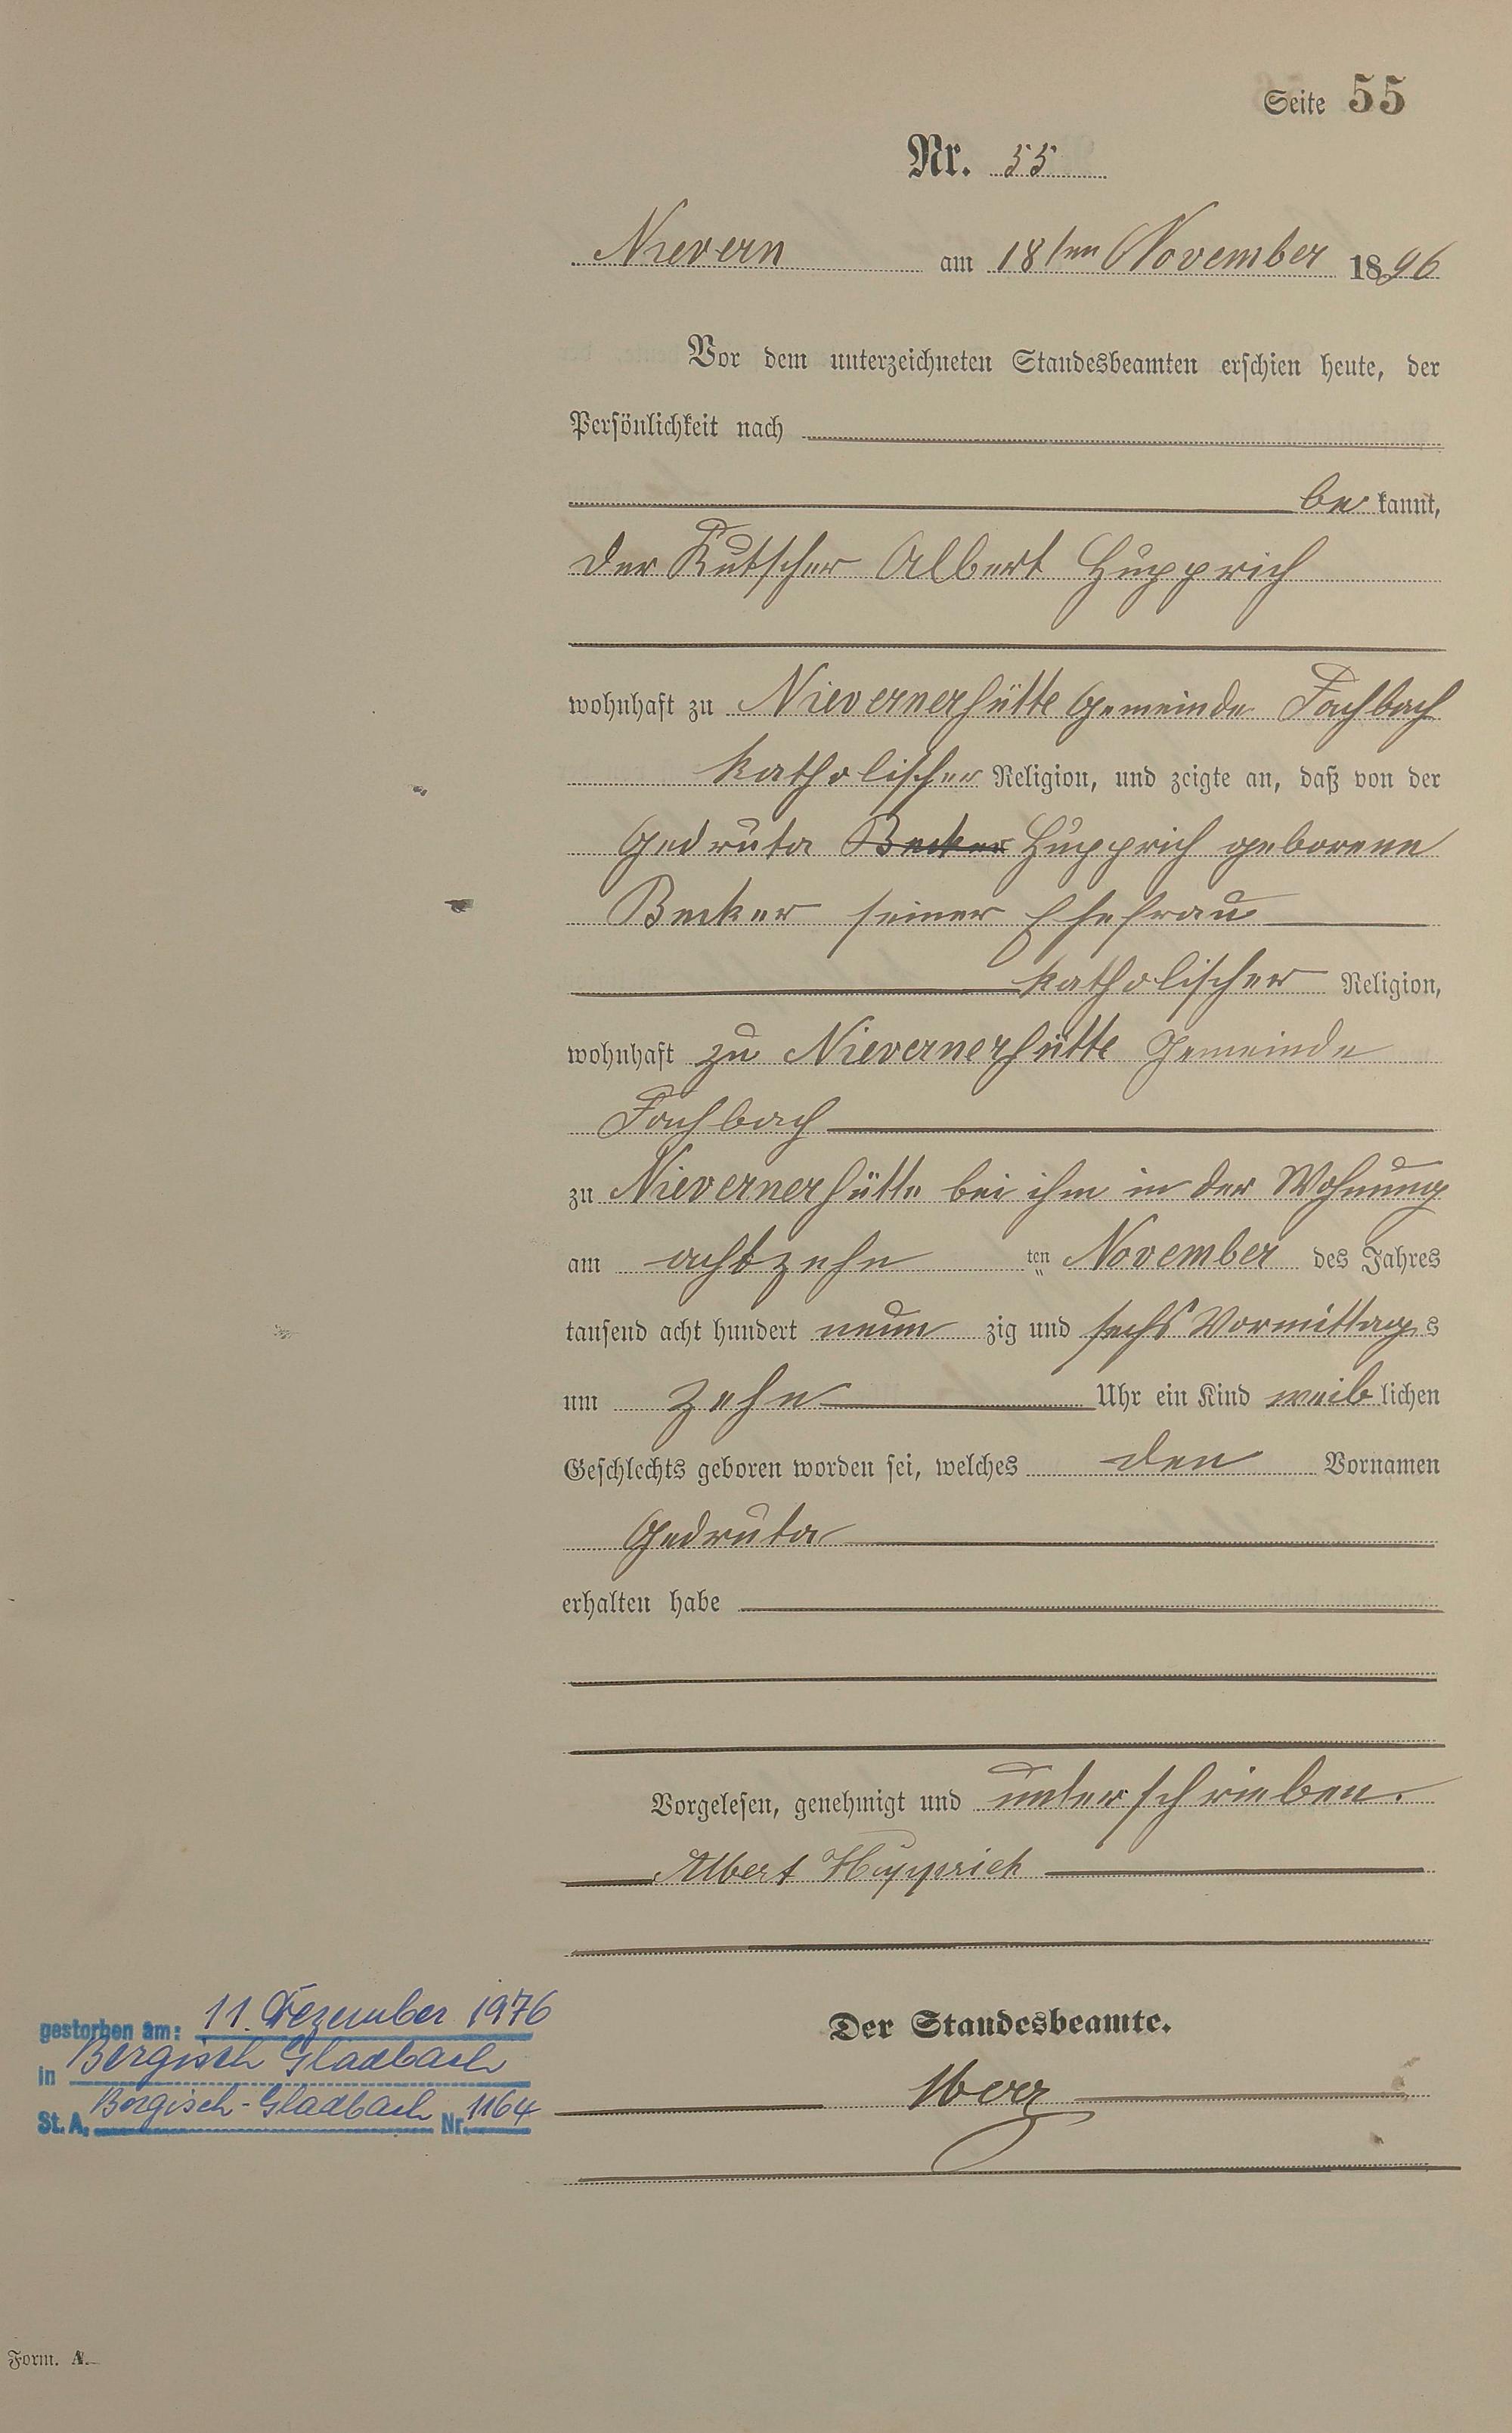 Seite 55
Nr. 55
Nievern am 18ten November 1896
Vor dem unterzeichneten Standesbeamten erschien heute, der
Persönlichkeit nach
be kannt,
der Kutscher Albert Hupprich
wohnhaft zu Nievernerhütte Gemeinde Fachbach
katholischer Religion, und zeigte an, daß von der
Gedruta Becker Hupprich geborene
Becker seiner Ehefrau
katholischer Religion,
wohnhaft zu Nievernerhütte Gemeinde
Fachbach
zu Nievernerhütte bei ihm in der Wohnung
am achtzehn ten November des Jahres
tausend acht hundert neun zig und sechs Vormittags
um zehn Uhr ein Kind weib lichen
Geschlechts geboren worden sei, welches den Vornamen
Gedruta
erhalten habe
Vorgelesen, genehmigt und unterschrieben.
Albert Hupprich
Der Standesbeamte.
gestorben am: 11. Dezember 1976
in Bergisch Gladbach
St. A. Bergisch-Gladbach Nr. 1164
Form. A.